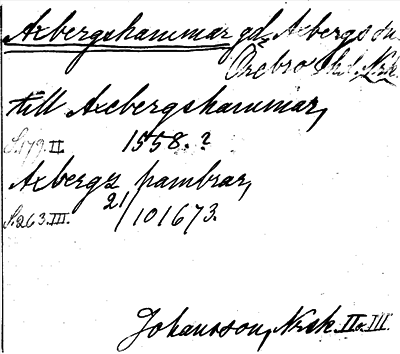 Axbergshammar gd, Axbergs sn
Örebro hd. Nrk.
till Axebergshammar,
S.179.II. 1558.?
Axbergz hambrar,
S.263.III. 21/10 1673.
Johansson, Nrsk. II o. III.